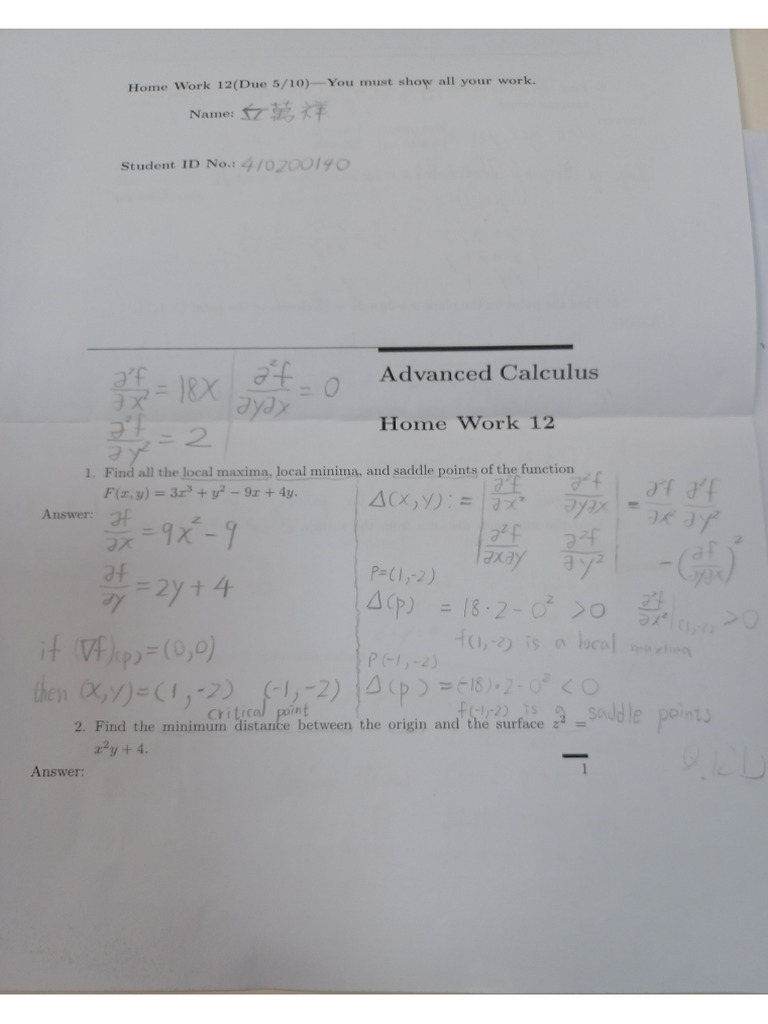 Home Work 12(Due 5/10)—You must show all your work.
Name: 萬祥
Student ID No.: 410200140
∂²f/∂x² = 18X | ∂²f/∂y∂x = 0
∂²f/∂y² = 2
Advanced Calculus
Home Work 12
1. Find all the local maxima, local minima, and saddle points of the function
F(x, y) = 3x³ + y² − 9x + 4y.
Answer:
∂f/∂x = 9x² − 9
∂f/∂y = 2y + 4
if (∇f)(p) = (0,0)
then (X,Y) = (1,−2) (−1,−2)
critical point
Δ(X,Y) := | ∂²f/∂x² ∂²f/∂y∂x | = ∂²f/∂x² ∂²f/∂y²
| ∂²f/∂x∂y ∂²f/∂y² | − (∂f/∂y∂x)²
P=(1,−2)
Δ(p) = 18·2−0² >0 ∂²f/∂x²|(1,−2) >0
f(1,−2) is a local maxima
P(−1,−2)
Δ(p) = (−18)·2−0² < 0
f(−1,−2) is a saddle points
Q.E.D
2. Find the minimum distance between the origin and the surface z² =
x²y + 4.
Answer:
1